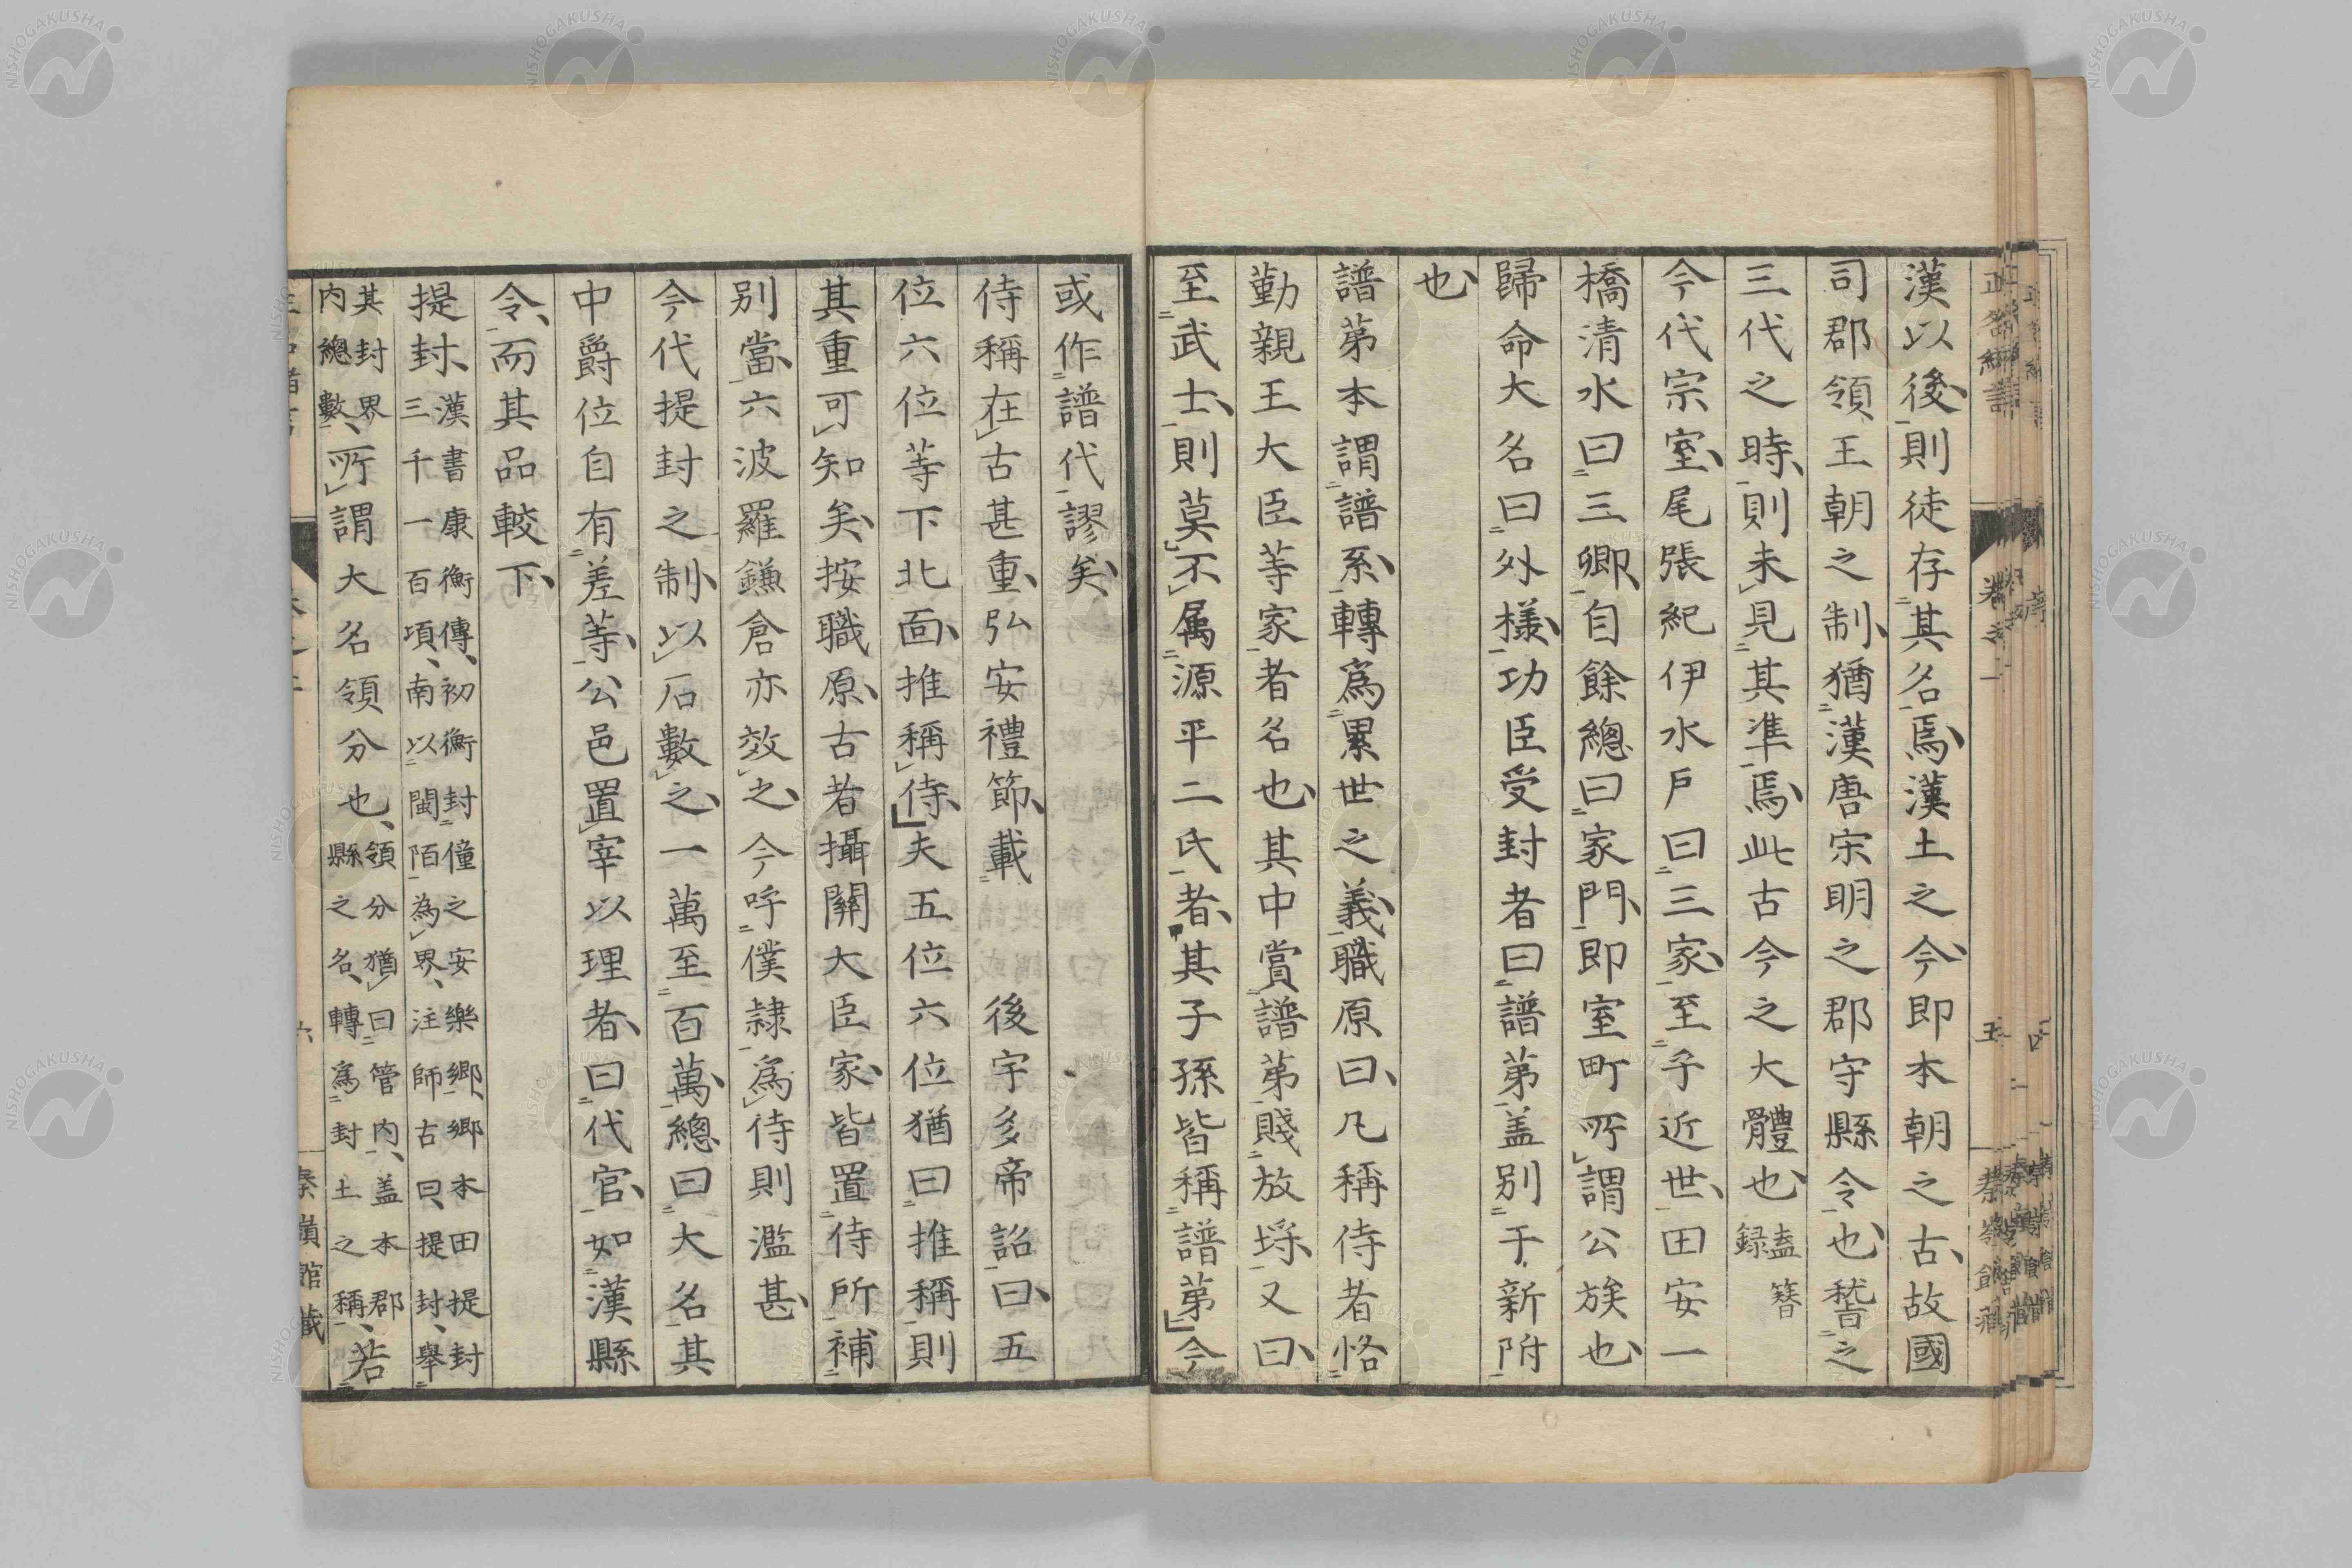 漢以後、則徒存其名焉、漢土之今、即本朝之古、故國
司郡領、王朝之制、猶漢唐宋明之郡守縣令也、稽之
三代之時、則未見其準焉、此古今之大體也、盍簪錄
今代宗室、尾張紀伊水戶曰三家、至乎近世、田安一
橋清水曰三卿、自餘總曰家門、即室町所謂公族也、
歸命大名曰外樣、功臣受封者曰譜第、盖別于新附
也、
譜第本謂譜系、轉為累世之義、職原曰、凡稱侍者恪
勤親王大臣等家者名也、其中賞譜第賤放埓、又曰、
至武士、則莫不屬源平二氏者、其子孫皆稱譜第、今
或作譜代、謬矣、
侍稱在古甚重、弘安禮節、載 後宇多帝詔曰、五
位六位等下北面、推稱侍、夫五位六位猶曰推稱則
其重可知矣、按職原、古者攝關大臣家、皆置侍所補
別當、六波羅鎌倉亦效之、今呼僕隷為侍則濫甚、
今代提封之制、以石數之、一萬至百萬、總曰大名、其
中爵位自有差等、公邑置宰以理者、曰代官、如漢縣
令、而其品較下、
提封、漢書康衡傳、初衡封僮之安樂鄉、鄉本田提封
三千一百項、南以閩陌為界、注師古曰、提封、舉
其封界
內總數、所謂大名領分也、領分猶曰管內、盖本郡
縣之名、轉為封土之稱、若
正名緒言
卷之上
五
NISHOGAKUSHA